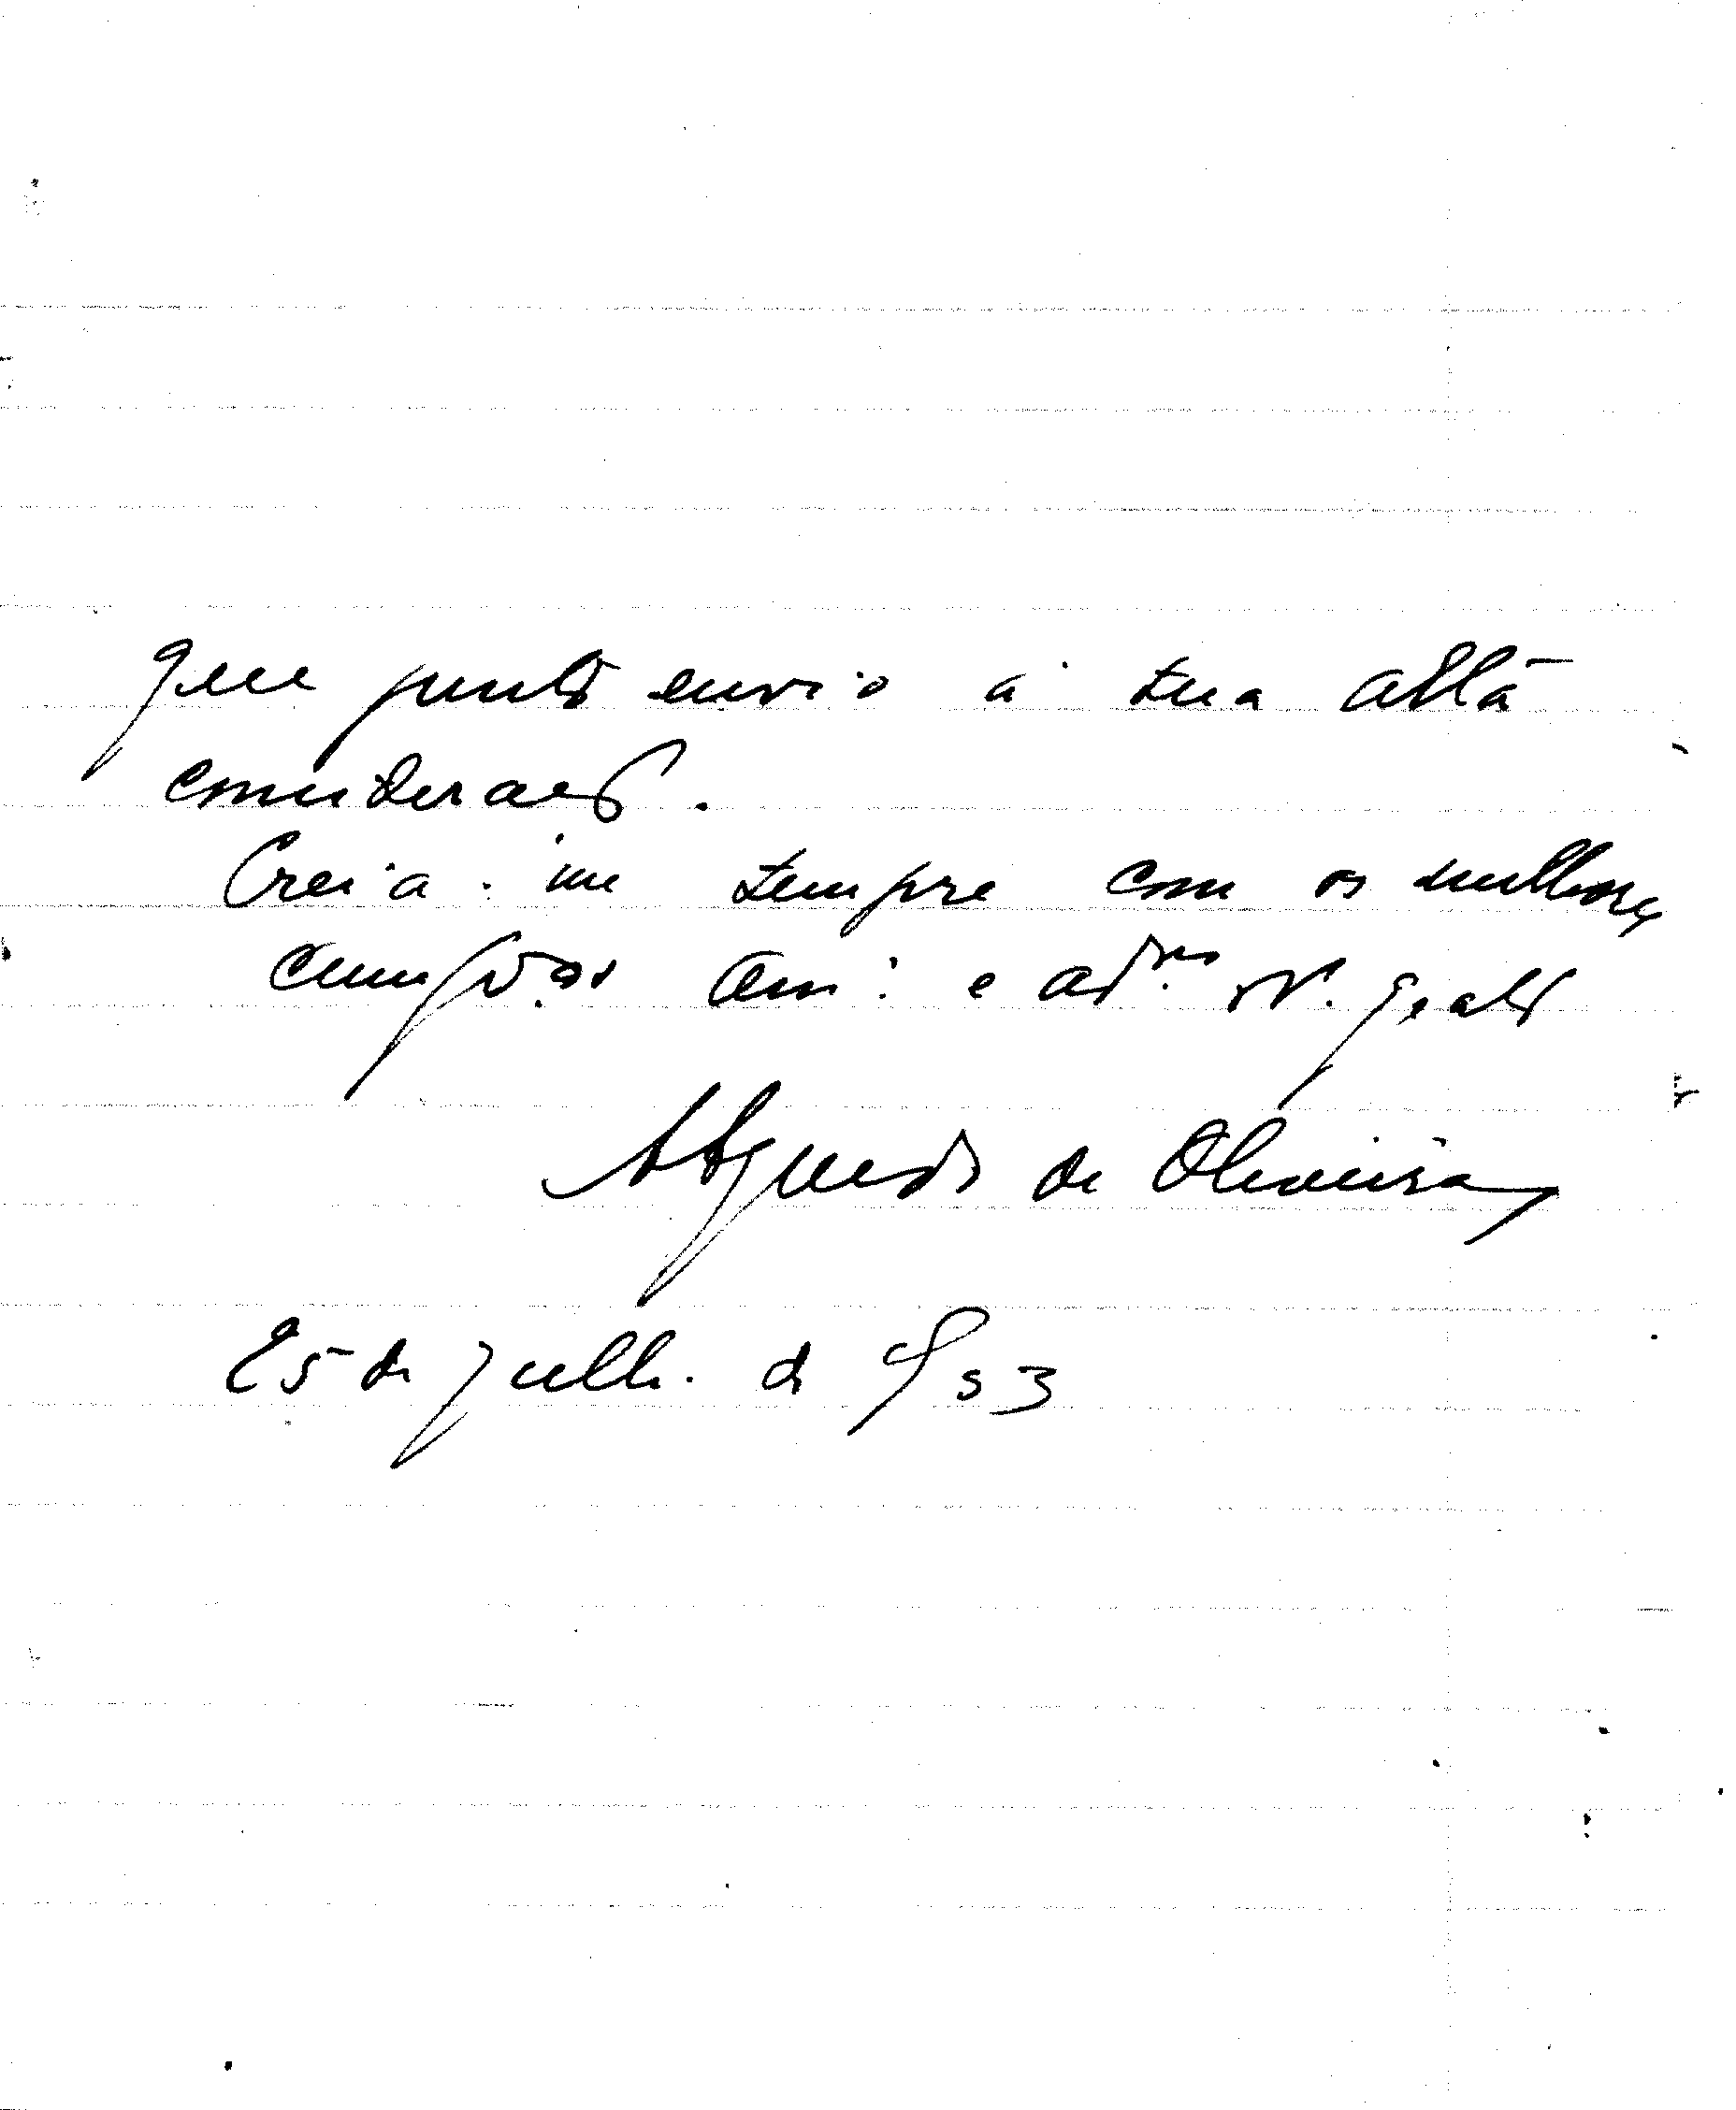 que junto envio à sua alta
consideração.
Creia-me sempre com os melhores
cumptos. am.º e adm.or m.to grato
A Águedo de Oliveira
25 de julho de 953